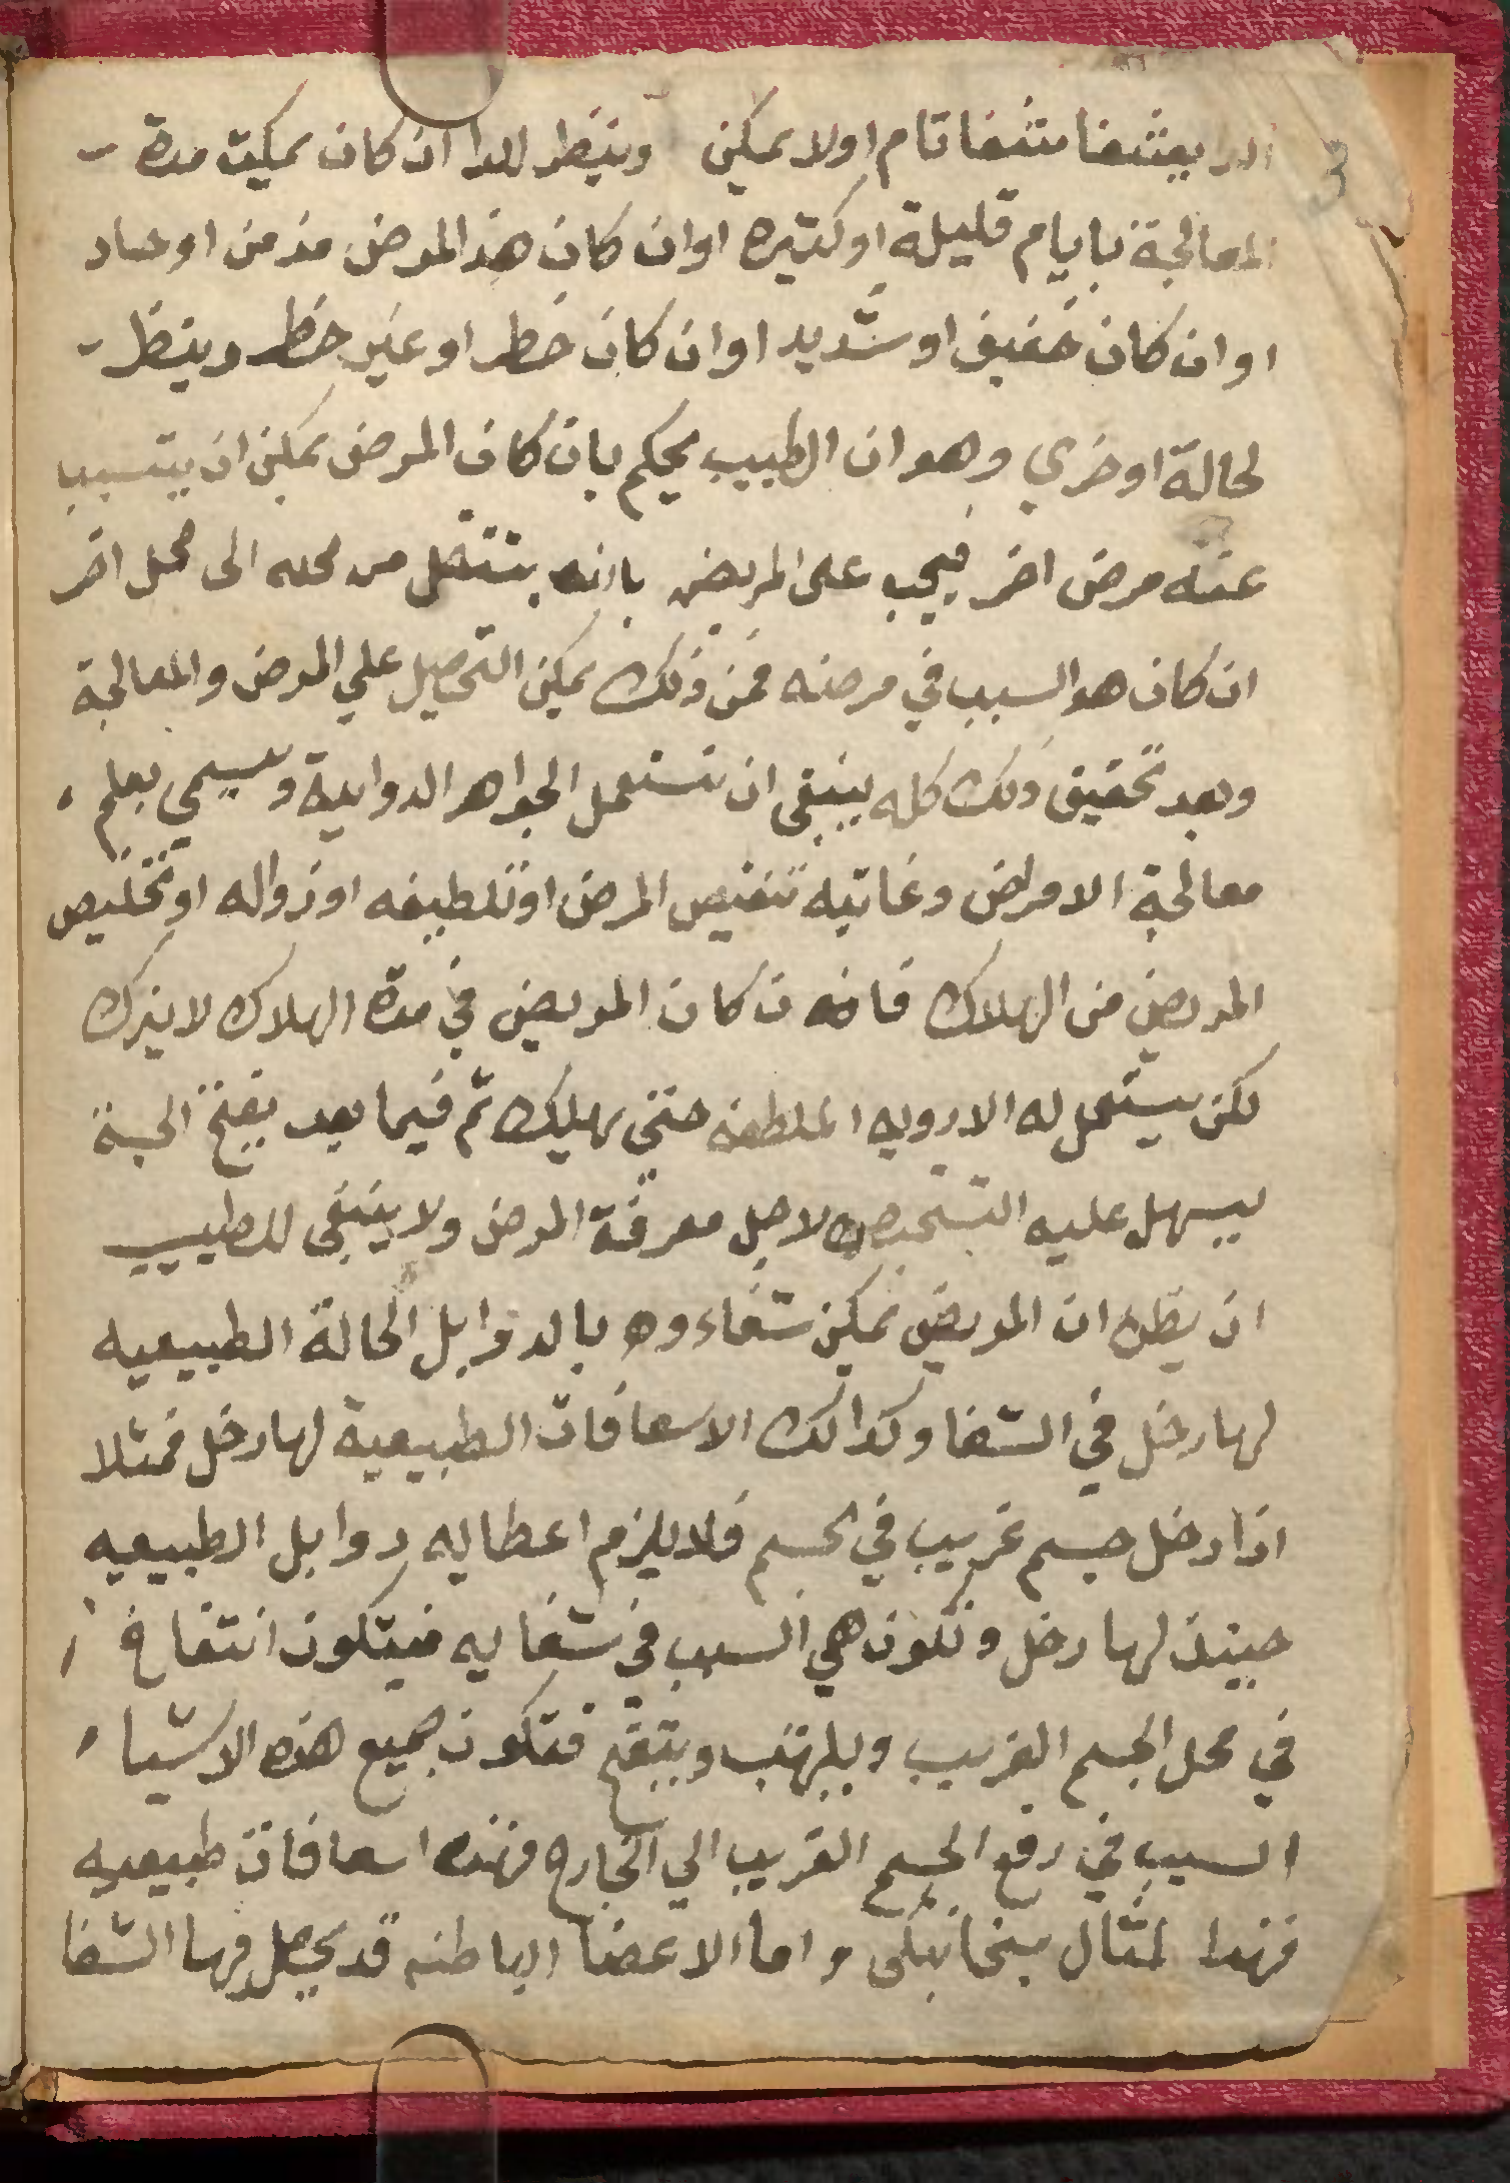 يشفا شفا تام اولا يمكن وينظر للدا ان كان يمكث مدة
المعالجة بايام قليلة او كتيره اوان كان هذالمرض مزمن اوحاد
اوان كان خفيف او شديد اوان كان خطر او غير خطر وينظر
لحالة اوخري وهو ان الطبيب يحكم بان كان المرض يمكن ان يتسبب
عنه مرض اخر فيجب على المريض بانه ينتقل من محله الى محل اخر
ان كان هو السبب في مرضه فمن ذلك يمكن التحصيل علي المرض والمعالجة
وبعد تحقيق ذلك كله ينبغى ان تستعمل الجواهر الدوايية وتسمي بعلم
معالجة الامراض وغايته تنقيص المرض اوتلطيفه اوزواله اوتخليص
المريض من الهلاك فانه ن كان المريض في مدة الهلاك لايترك
لكن يستعمل له الادويه الملطفه حتى يهلك ثم فيما بعد بفتح الجسة
يسهل عليه التشخيص لاجل معرفة المرض ولا ينبغى للطبيب
ان يظن ان المريض يمكن شفاءوه بالدوا بل الحالة الطبيعيه
لها دخل في الشفا وكدالك الاسعافات الطبيعية لها دخل فمثلا
اذا دخل جسم غريب في الجسم فلا يلزم اعطاليه دوا بل الطبيعيه
حينئذ لها دخل وتكون هي السبب في شفايه فيتكون انتفاخ
في محل الجسم الغريب ويلتهب ويتقيح فتكون جميع هذه الاشيا
السبب في دفع الجسم الغريب الي الخارج فهذه اسعافات طبيعيه
فهدا لمثال ميخانيكى واما الاعضا الباطنه قد يحصل فيها الشفا
3